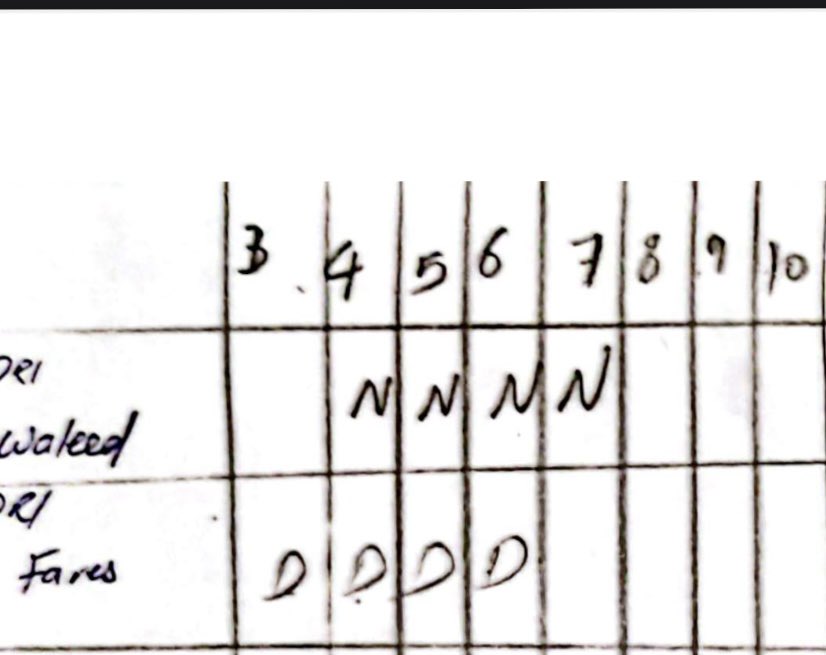 3 4 5 6 7 8 9 10
DRI
N N N N
Waleed
DRI
Fares D D D D